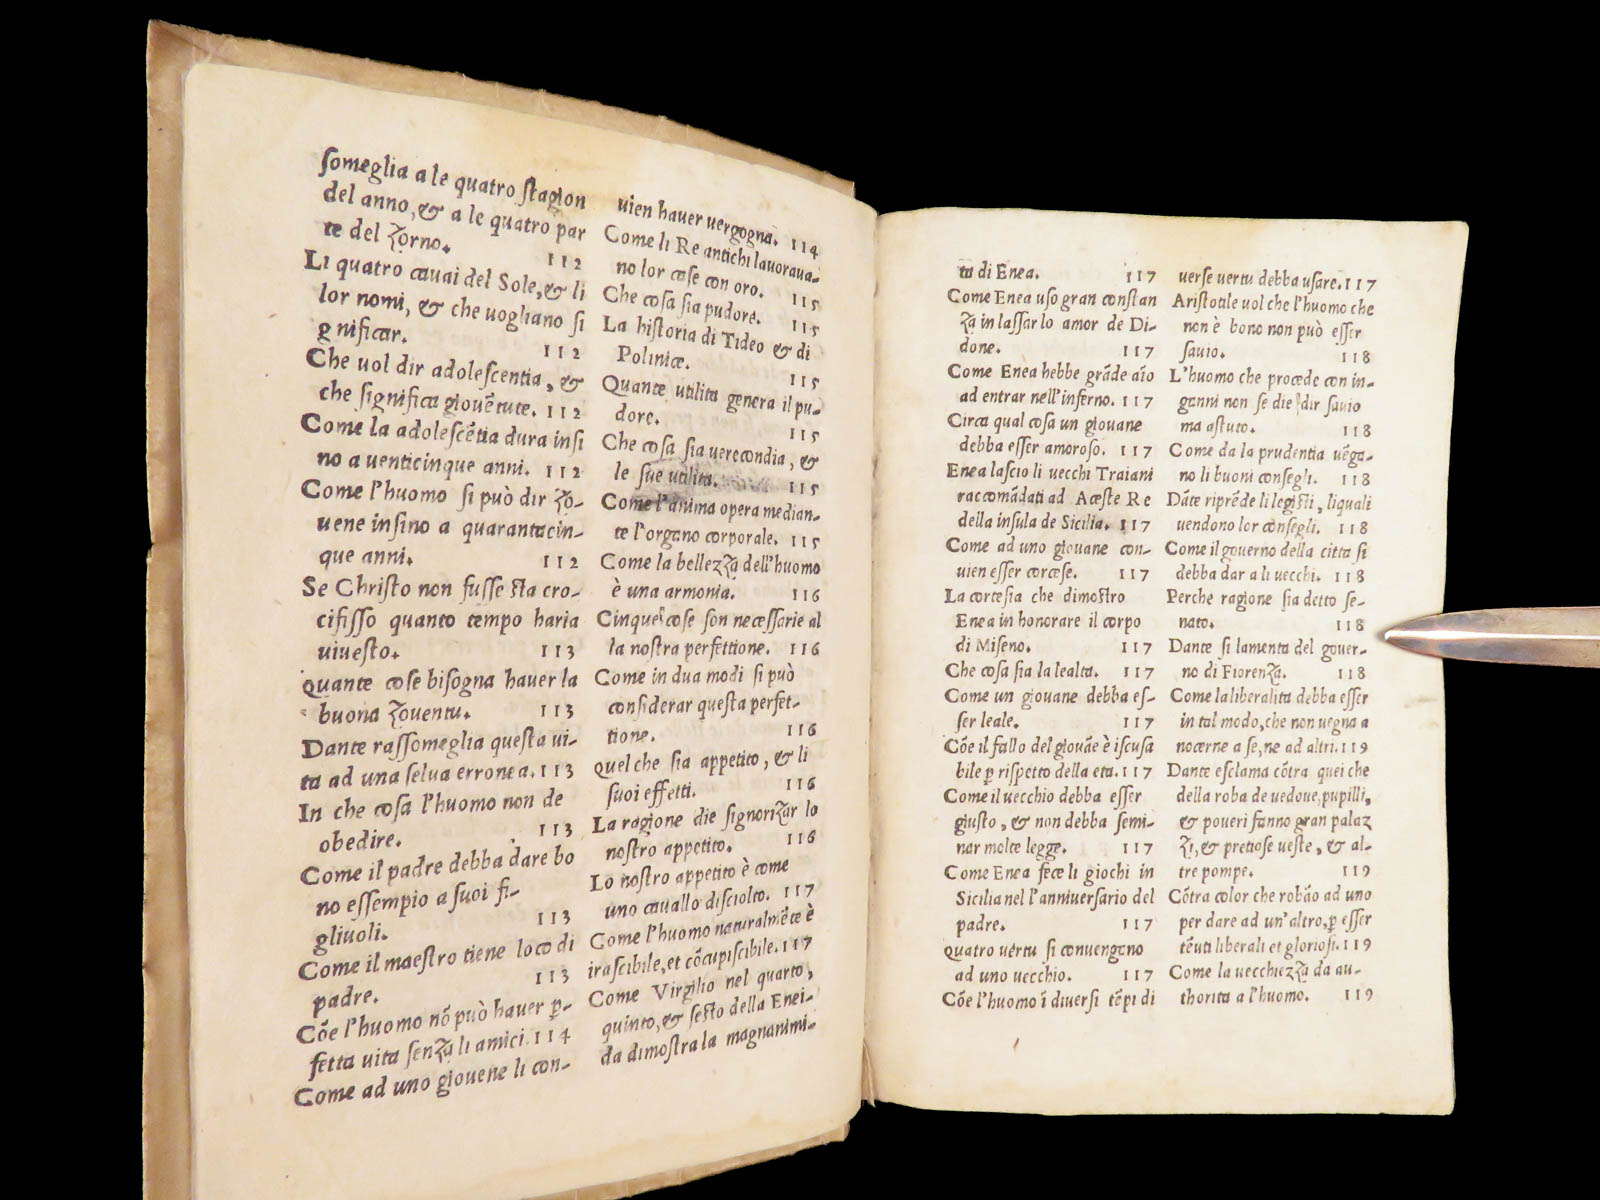 ſomeglia a le quatro ſtagion
del anno, & a le quatro par
te del Zorno. 112
Li quatro cauai del Sole, & li
lor nomi, & che uogliano ſi
gnificar. 112
Che uol dir adoleſcentia, &
che ſignifica giouẽtute. 112
Come la adoleſcẽtia dura inſi
no a uenticinque anni. 112
Come l'huomo ſi può dir Zo-
uene inſino a quarantacin-
que anni. 112
Se Chriſto non fuſſe ſta cro-
cifiſſo quanto tempo haria
uiueſto. 113
Quante coſe biſogna hauer la
buona Zouentu. 113
Dante raſſomeglia queſta ui-
ta ad una ſelua erronea. 113
In che coſa l'huomo non de
obedire. 113
Come il padre debba dare bo
no eſſempio a ſuoi fi-
gliuoli. 113
Come il maeſtro tiene loco di
padre. 113
Cõe l'huomo nõ può hauer ꝑ-
fetta uita ſenZa li amici. 114
Come ad uno giouene li con-
uien hauer uergogna. 114
Come li Re antichi lauoraua-
no lor coſe con oro. 115
Che coſa ſia pudore. 115
La hiſtoria di Tideo & di
Polinice. 115
Quante utilita genera il pu-
dore. 115
Che coſa ſia uerecondia, &
le ſue utilita. 115
Come l'anima opera median-
te l'organo corporale. 115
Come la bellezZa dell'huomo
è una armonia. 116
Cinque coſe ſon neceſſarie al
la noſtra perfettione. 116
Come in dua modi ſi può
conſiderar queſta perfet-
tione. 116
Quel che ſia appetito, & li
ſuoi effetti. 116
La ragione die ſignoriZar lo
noſtro appetito. 116
Lo noſtro appetito è come
uno cauallo diſciolto. 117
Come l'huomo naturalmẽte è
iraſcibile, et cõcupiſcibile. 117
Come Virgilio nel quarto,
quinto, & ſeſto della Enei-
da dimoſtra la magnanimi-
ta di Enea. 117
Come Enea uſo gran conſtan
Za in laſſar lo amor de Di-
done. 117
Come Enea hebbe grãde aĩo
ad entrar nell'inferno. 117
Circa qual coſa un giouane
debba eſſer amoroſo. 117
Enea laſcio li uecchi Traiani
raccomãdati ad Aceſte Re
della inſula de Sicilia. 117
Come ad uno giouane con-
uien eſſer corteſe. 117
La corteſia che dimoſtro
Enea in honorare il corpo
di Miſeno. 117
Che coſa ſia la lealta. 117
Come un giouane debba eſ-
ſer leale. 117
Cõe il fallo del giouãe è iſcuſa
bile ꝑ riſpetto della eta. 117
Come il uecchio debba eſſer
giuſto, & non debba ſemi-
nar molte legge. 117
Come Enea fece li giochi in
Sicilia nel l'anniuerſario del
padre. 117
Quatro uertu ſi conuengono
ad uno uecchio. 117
Cõe l'huomo ĩ diuerſi tẽpi di
uerſe uertu debba uſare. 117
Ariſtotile uol che l'huomo che
non è bono non può eſſer
ſauio. 118
L'huomo che procede con in-
ganni non ſe die dir ſauio
ma aſtuto. 118
Come da la prudentia uẽga-
no li buoni conſegli. 118
Dãte riprẽde li legiſti, liquali
uendono lor conſegli. 118
Come il gouerno della citta ſi
debba dar a li uecchi. 118
Perche ragione ſia detto ſe-
nato. 118
Dante ſi lamenta del gouer-
no di FiorenZa. 118
Come la liberalita debba eſſer
in tal modo, che non uegna a
nocerne a ſe, ne ad altri. 119
Dante eſclama cõtra quei che
della roba de uedoue, pupilli,
& poueri fanno gran palaz
Zi, & pretioſe ueſte, & al-
tre pompe. 119
Cõtra color che robão ad uno
per dare ad un'altro, ꝑ eſſer
tẽuti liberali et glorioſi. 119
Come la uecchiezZa da au-
thorita a l'huomo. 119